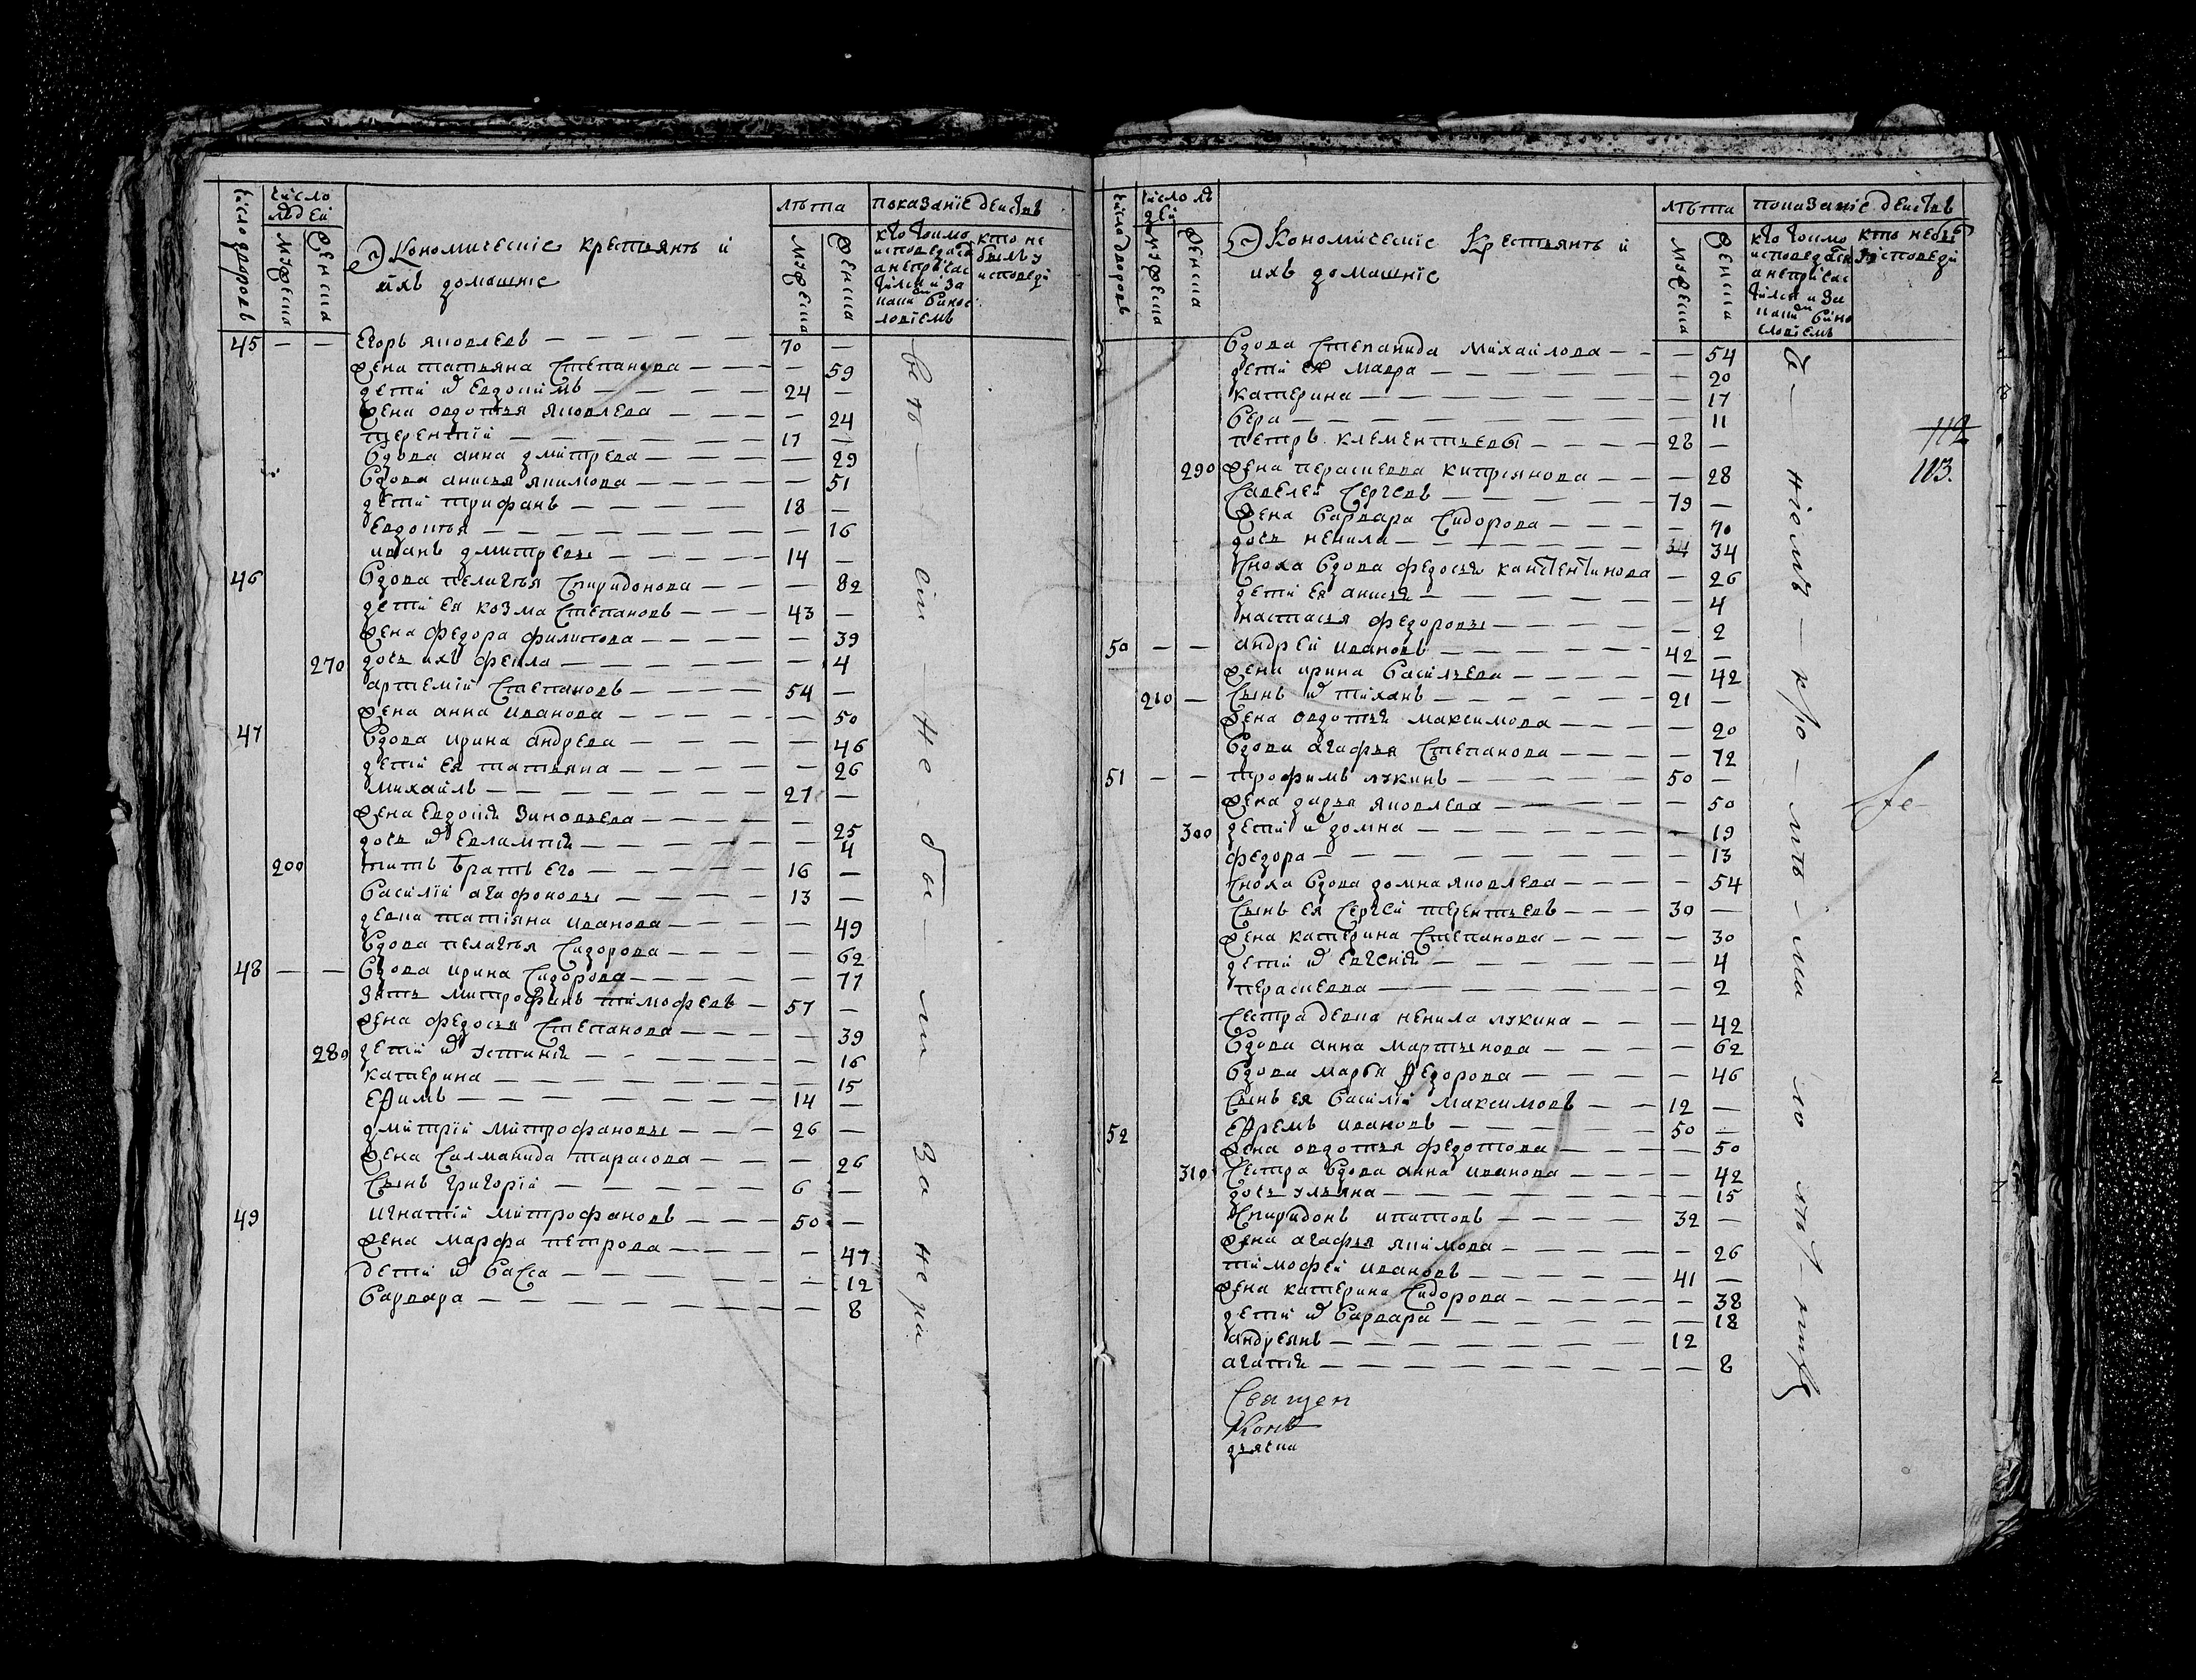 число дворовъ
число людей
мужеска
женска
Экономическïе крестьянъ и
ихъ домашнïе
лѣта
мужеска
женска
показанïе действъ
кто токмо
исповедася
а непричас
тился и за
каки
винос
ловïемъ
кто не
былъ у
исповеди
45 — — Егоръ яковлевъ 70 —
жена татьяна Степанова — 59
дети их Евдокимъ 24 —
жена овдотья яковлева — 24
терентïй 17 —
вдова анна дмитрева — 29
вдова анисья якимова — 51
дети трифанъ 18 —
Евдокья — 16
иванъ дмитревы 14 —
46 вдова пелагья Спиридонова — 82
дети ея козма Степановъ 43 —
жена федора филипова — 39
270 дочь ихъ фекла — 4
артемïй Степановъ 54 —
жена анна иванова — 50
47 вдова ирина андрева — 46
дети ея татьяна — 26
михайлъ 27 —
жена Евдокия Зиновьева — 25
дочь их Евлампия — 4
200 титъ братъ его 16 —
василïй агафоновы 13 —
девка татïяна иванова — 49
вдова пелагья Сидорова — 62
48 — — вдова ирина Сидорова — 77
Зять митрофанъ тимофеевъ 57 —
жена федосья Степанова — 39
280 дети их устиния — 16
катерина — 15
Ефимъ 14 —
дмитрïй митрофановы 26 —
жена Саламанида тарасова — 26
Сынъ григорïй 6 —
49 игнатïй митрофановъ 50 —
жена марфа петрова — 47
дети их васса — 12
варвара — 8
число дворовъ
число лю
дей
мужеска
женска
Экономическïе крестьянъ и
ихъ домашнïе
лѣта
мужеска
женска
показанïе действъ
кто токмо
исповедася
а непричас
тился и за
каки
вино
словïемъ
кто небы
у исповеди
вдова Степанида михайлова — 54
дети ея мавра — 20
катерина — 17
вера — 11
петръ клементьевы 28 —
290 жена параскевва киприянова — 28
Савелей Сергевъ 79 —
жена варвара Сидорова — 70
дочь ненила 34 34
Сноха вдова федосья канстентинова — 26
дети ея анисья — 4
настасья федоровы — 2
50 — — андрей ивановъ 42 —
жена ирина васильева — 42
210 — Сынъ их тиханъ 21 —
жена овдотья максимова — 20
вдова агафья Степанова — 72
51 — — трофимъ лукинъ 50 —
жена дарья яковлева — 50
300 дети их домна — 19
федора — 13
Сноха вдова домна яковлева — 54
Сынъ ея Сергей терентьевъ 30 —
жена катерина Степанова — 30
дети их Евгения — 4
параскевва — 2
Сестра девка ненила лукина — 42
вдова анна мартынова — 62
вдова марья федорова — 46
Сынъ ея василïй максимовъ 12 —
52 Ефремъ ивановъ 50 —
жена овдотья федотова — 50
310 Сестра вдова анна иванова — 42
дочь ульяна — 15
Спиридонъ ипатовъ 32 —
жена агафья якимова — 26
тимофей ивановъ 41 —
жена катерина Сидорова — 38
дети их варвара — 18
андреянъ 12 —
агапия — 8
112
113.